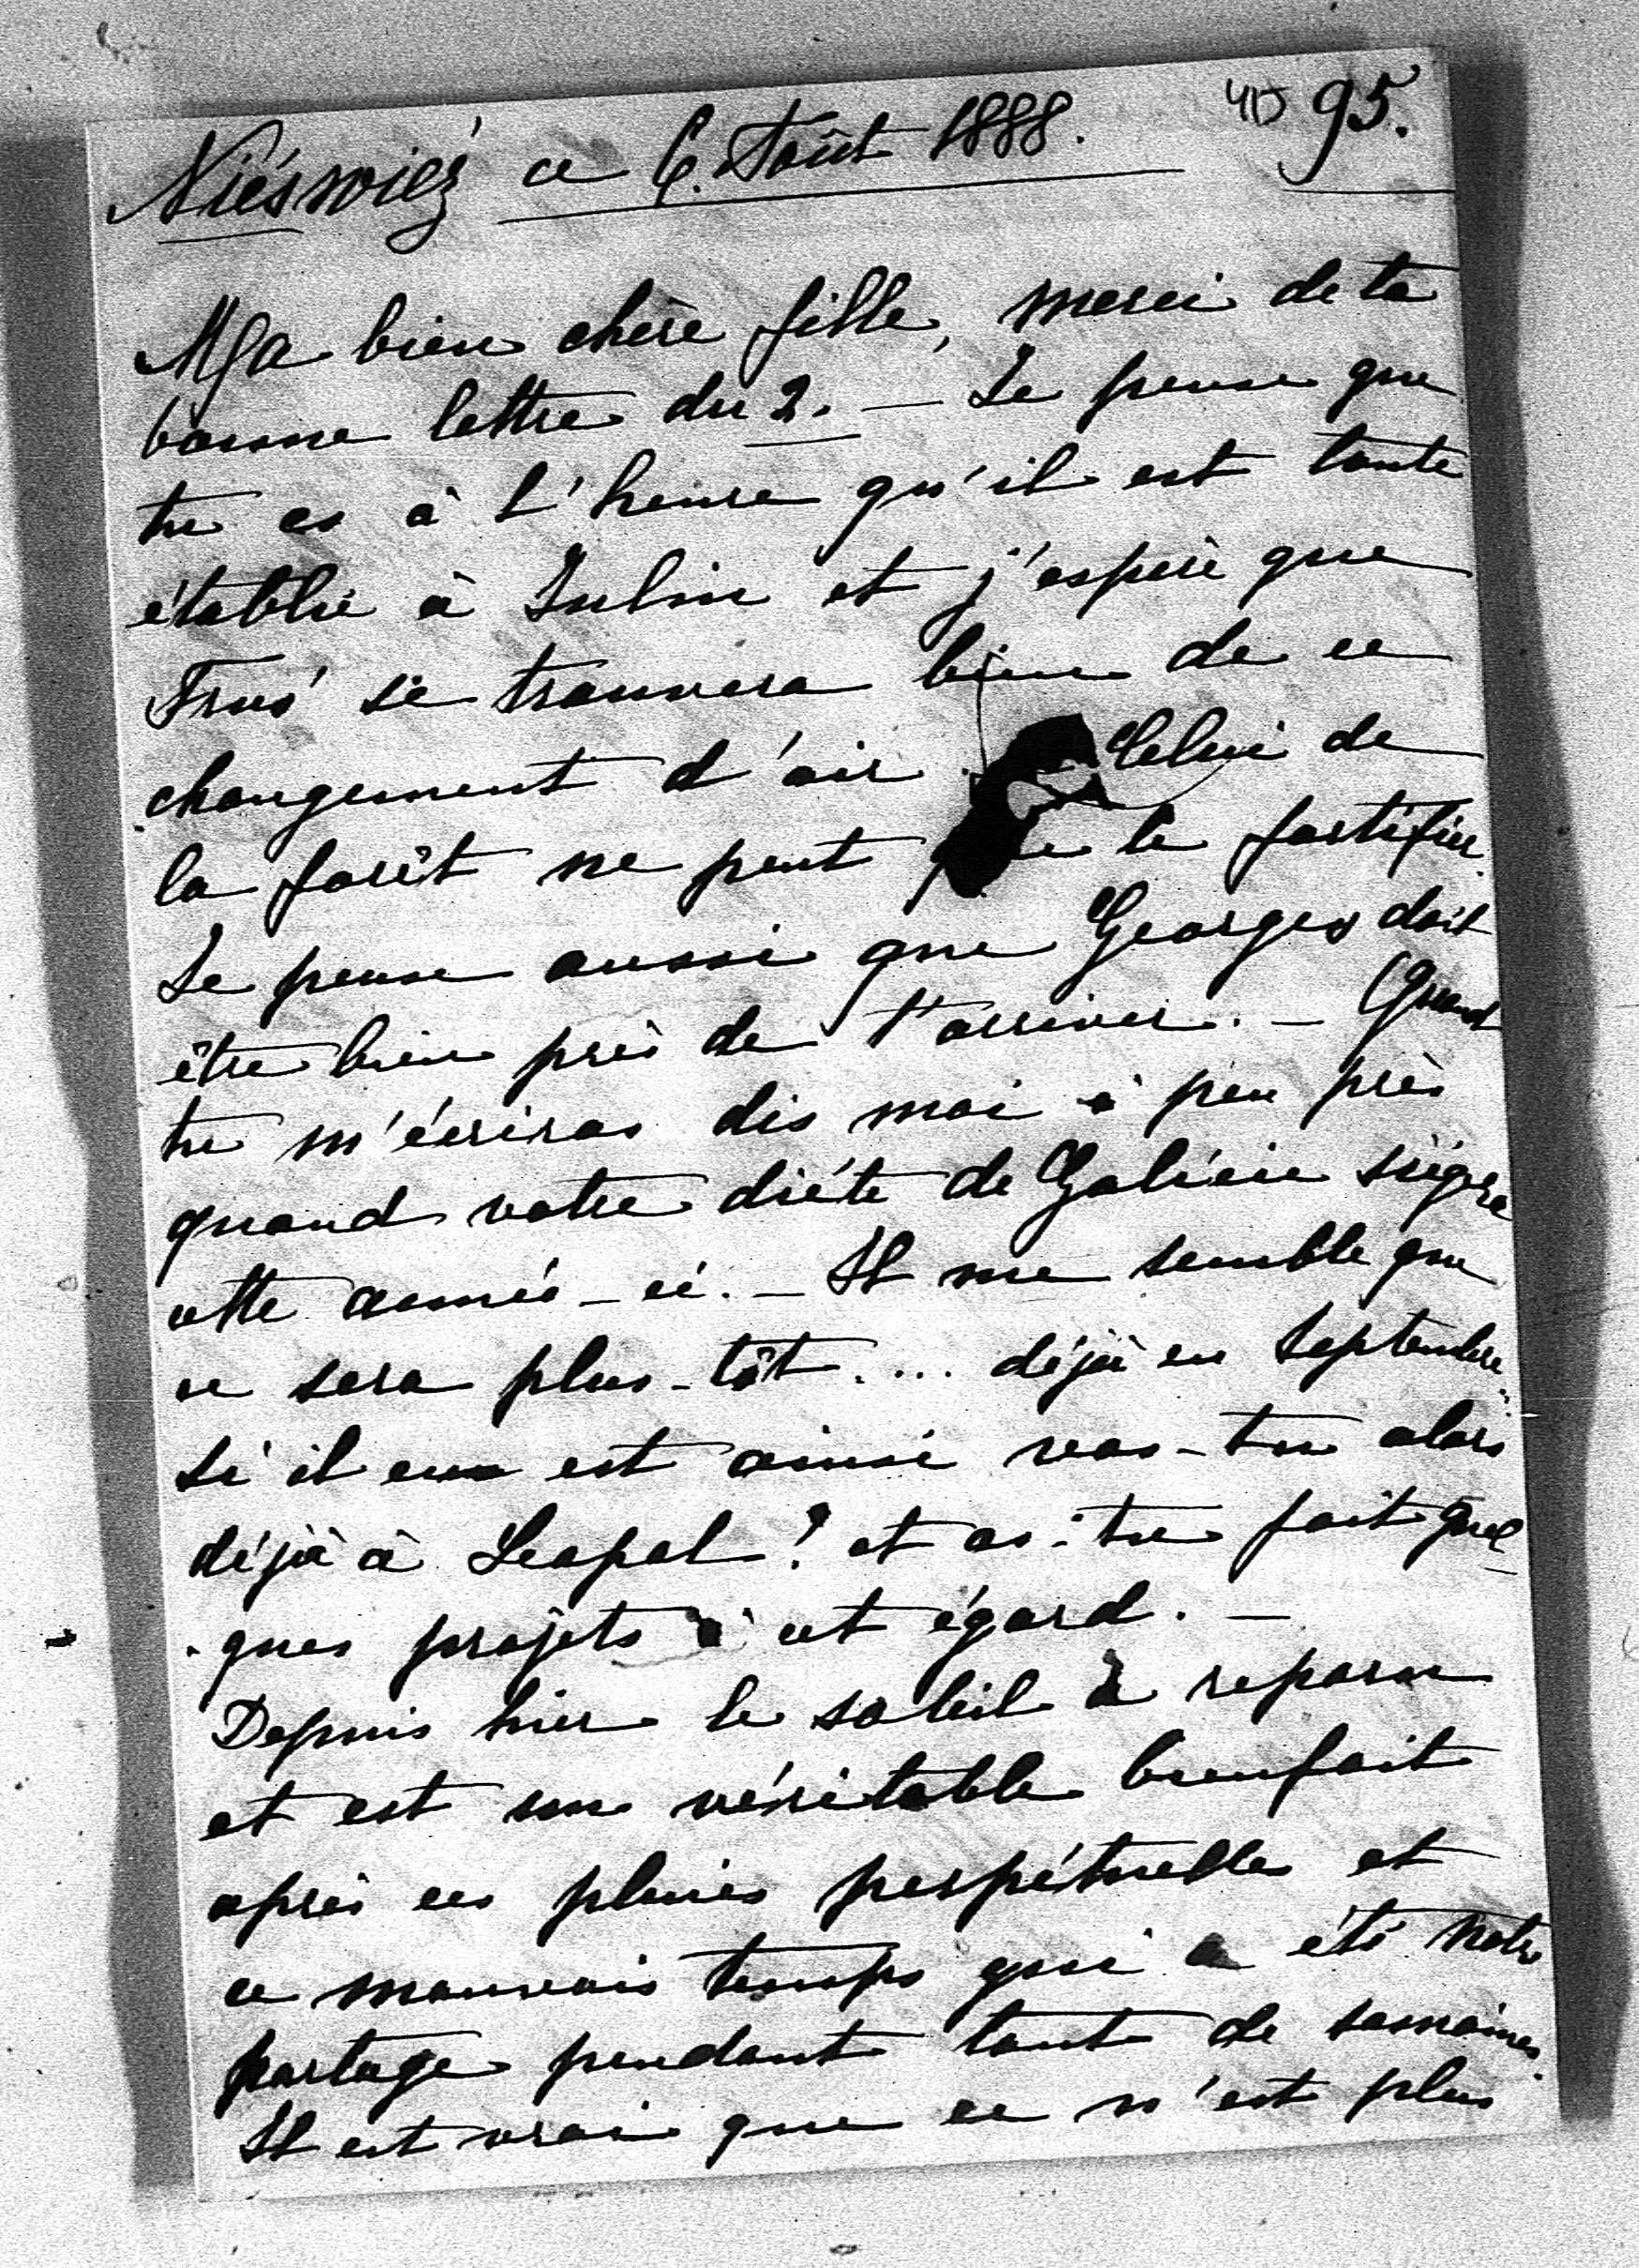 Niéswiéz ce 6. Août 1888. 95.
Ma bien chère fille, merci de ta
bonne lettre du 2. — Je pense que
tu es à l'heure qu'il est toute
établie à Julin et j'espère que
se trouvera bien de ce
changement d'air. Celui de
la forêt ne peut que le fortifier.
Je pense aussi que Georges doit
être bien près de t'arriver. — Quand
tu m'écriras dis moi à peu près
quand votre diéte de Galicie siégera
cette année-ci. — Il me semble que
ce sera plus-tôt.... déjà en Septembre.
Si il en est ainsi vas-tu alors
déjà à Léopol? et as-tu fait quel-
ques projets à cet égard. —
Depuis hier le soleil à reparu
et est un véritable bienfait
après ces pluies perpétuelles et
ce mauvais temps qui a été notre
partage pendant tant de semaines.
Il est vrai que ce n'est plus